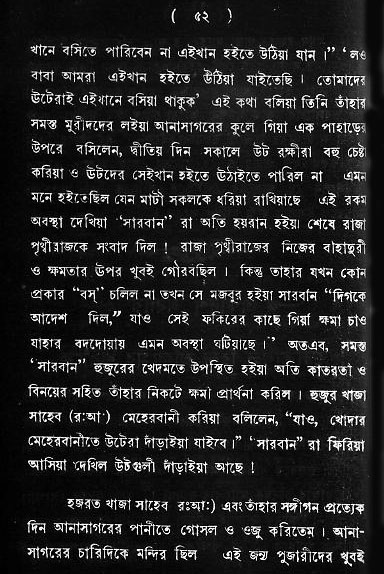 ( ৫২ )
খানে বসিতে পারিবেন না এইখান হইতে উঠিয়া যান।” ‘লও
বাবা আমরা এইখান হইতে উঠিয়া যাইতেছি। তোমাদের
উটেরাই এইখানে বসিয়া থাকুক’ এই কথা বলিয়া তিনি তাঁহার
সমস্ত মুরীদদের লইয়া আনাসাগরের কুলে গিয়া এক পাহাড়ের
উপরে বসিলেন, দ্বীতিয় দিন সকালে উট রক্ষীরা বহু চেষ্টা
করিয়া ও উটদের সেইখান হইতে উঠাইতে পারিল না এমন
মনে হইতেছিল যেন মাটী সকলকে ধরিয়া রাখিয়াছে এই রকম
অবস্থা দেখিয়া ‘সারবান” রা অতি হয়রান হইয়া শেষে রাজা
পৃথ্বীরাজকে সংবাদ দিল! রাজা পৃথ্বীরাজের নিজের বাহাদুরী
ও ক্ষমতার উপর খুবই গৌরবছিল। কিন্তু তাহার যখন কোন
প্রকার “বস্” চলিল না তখন সে মজবুর হইয়া সারবান “দিগকে
আদেশ দিল,” যাও সেই ফকিরের কাছে গিয়া ক্ষমা চাও
যাহার বদদোয়ায় এমন অবস্থা ঘটিয়াছে।’ অতএব, সমস্ত
‘সারবান” হুজুরের খেদমতে উপস্থিত হইয়া অতি কাতরতা ও
বিনয়ের সহিত তাঁহার নিকটে ক্ষমা প্রার্থনা করিল। হুজুর খাজা
সাহেব (র:আ:) মেহেরবানী করিয়া বলিলেন, “যাও, খোদার
মেহেরবানীতে উটেরা দাঁড়াইয়া যাইবে।” ‘সারবান” রা ফিরিয়া
আসিয়া দেখিল উটগুলী দাঁড়াইয়া আছে!
হজরত খাজা সাহেব রঃআ:) এবং তাঁহার সঙ্গীগন প্রত্যেক
দিন আনাসাগরের পানীতে গোসল ও ওজু করিতেম। আনা-
সাগরের চারিদিকে মন্দির ছিল এই জন্য পুজারীদের খুবই